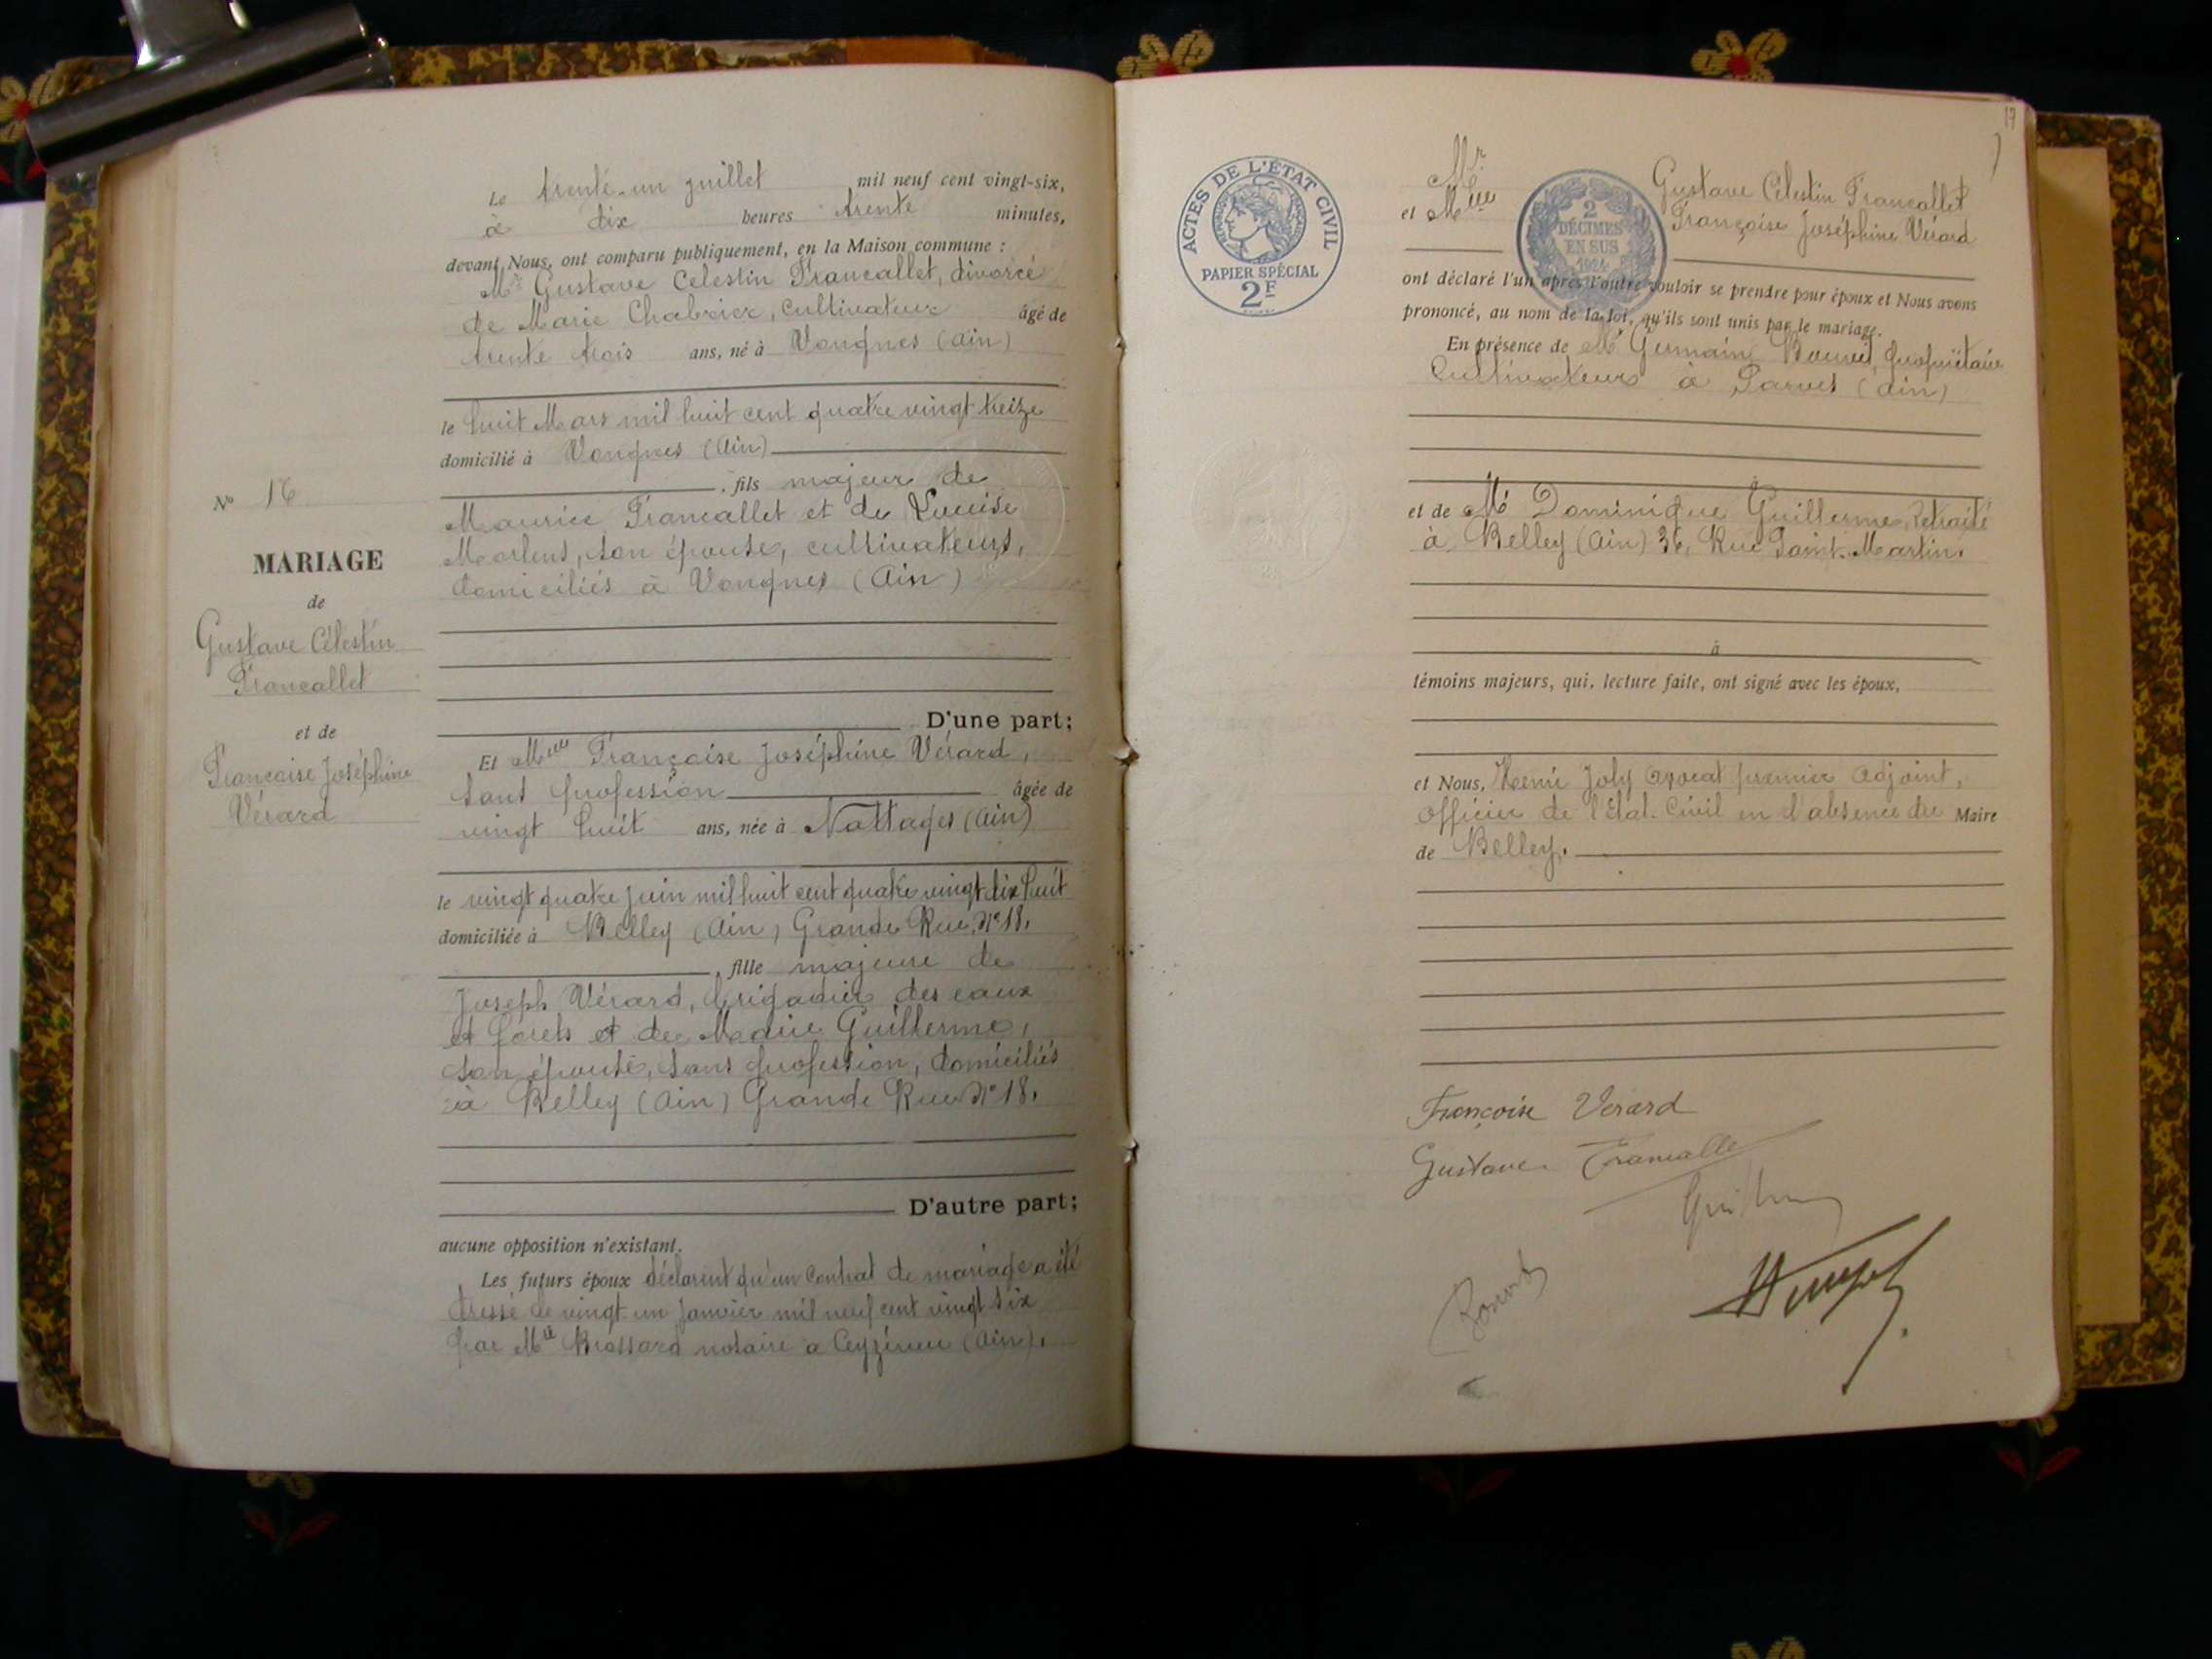 Le trente-un juillet mil neuf cent vingt-six,
à dix heures trente minutes,
devant Nous, ont comparu publiquement, en la Maison commune :
Mr Gustave Célestin Francallet, divorcé
de Marie Chabrier, cultivateur âgé de
trente trois ans, né à Vongnes (Ain)
le huit Mars mil huit cent quatre vingt treize
domicilié à Vongnes (Ain)
, fils majeur de
Maurice Francallet et de Louise
son épouse, cultivateurs,
domiciliés à Vongnes (Ain)
D'une part;
Et Melle Françoise Joséphine Vérard,
sans profession âgée de
vingt huit ans, née à Nattages (Ain)
le vingt quatre juin mil huit cent quatre vingt dix huit
domiciliée à Belley (Ain) Grande Rue, No 18.
, fille majeure de
Joseph Vérard, brigadier des eaux
et forêts et de Marie Guillerme,
son épouse, sans profession, domiciliés
à Belley (Ain) Grande Rue No 18.
D'autre part;
aucune opposition n'existant.
Les futurs époux déclarent qu'un contrat de mariage a été
dressé le vingt un janvier mil neuf cent vingt six
par Me Brossard notaire a Ceyzérieu (Ain).
No 16
MARIAGE
de
Gustave Célestin
Francallet
et de
Françoise Joséphine
Vérard
17
ACTES DE L'ÉTAT CIVIL
PAPIER SPÉCIAL
2F
2
DÉCIMES
EN SUS
1924
Mr Gustave Célestin Francallet
et Melle Françoise Joséphine Vérard
ont déclaré l'un après l'autre vouloir se prendre pour époux et Nous avons
prononcé, au nom de la loi, qu'ils sont unis par le mariage.
En présence de Mr Germain Bouvet, propriétaire
Cultivateur à Parves (Ain)
et de Mr Dominique Guillerme, retraité
à Belley (Ain) 36, Rue Saint-Martin.
à
témoins majeurs, qui, lecture faite, ont signé avec les époux,
et Nous, Henri Joly avocat premier adjoint,
officier de l'Etat-Civil en l'absence du Maire
de Belley.
Françoise Verard
Gustave Francallet